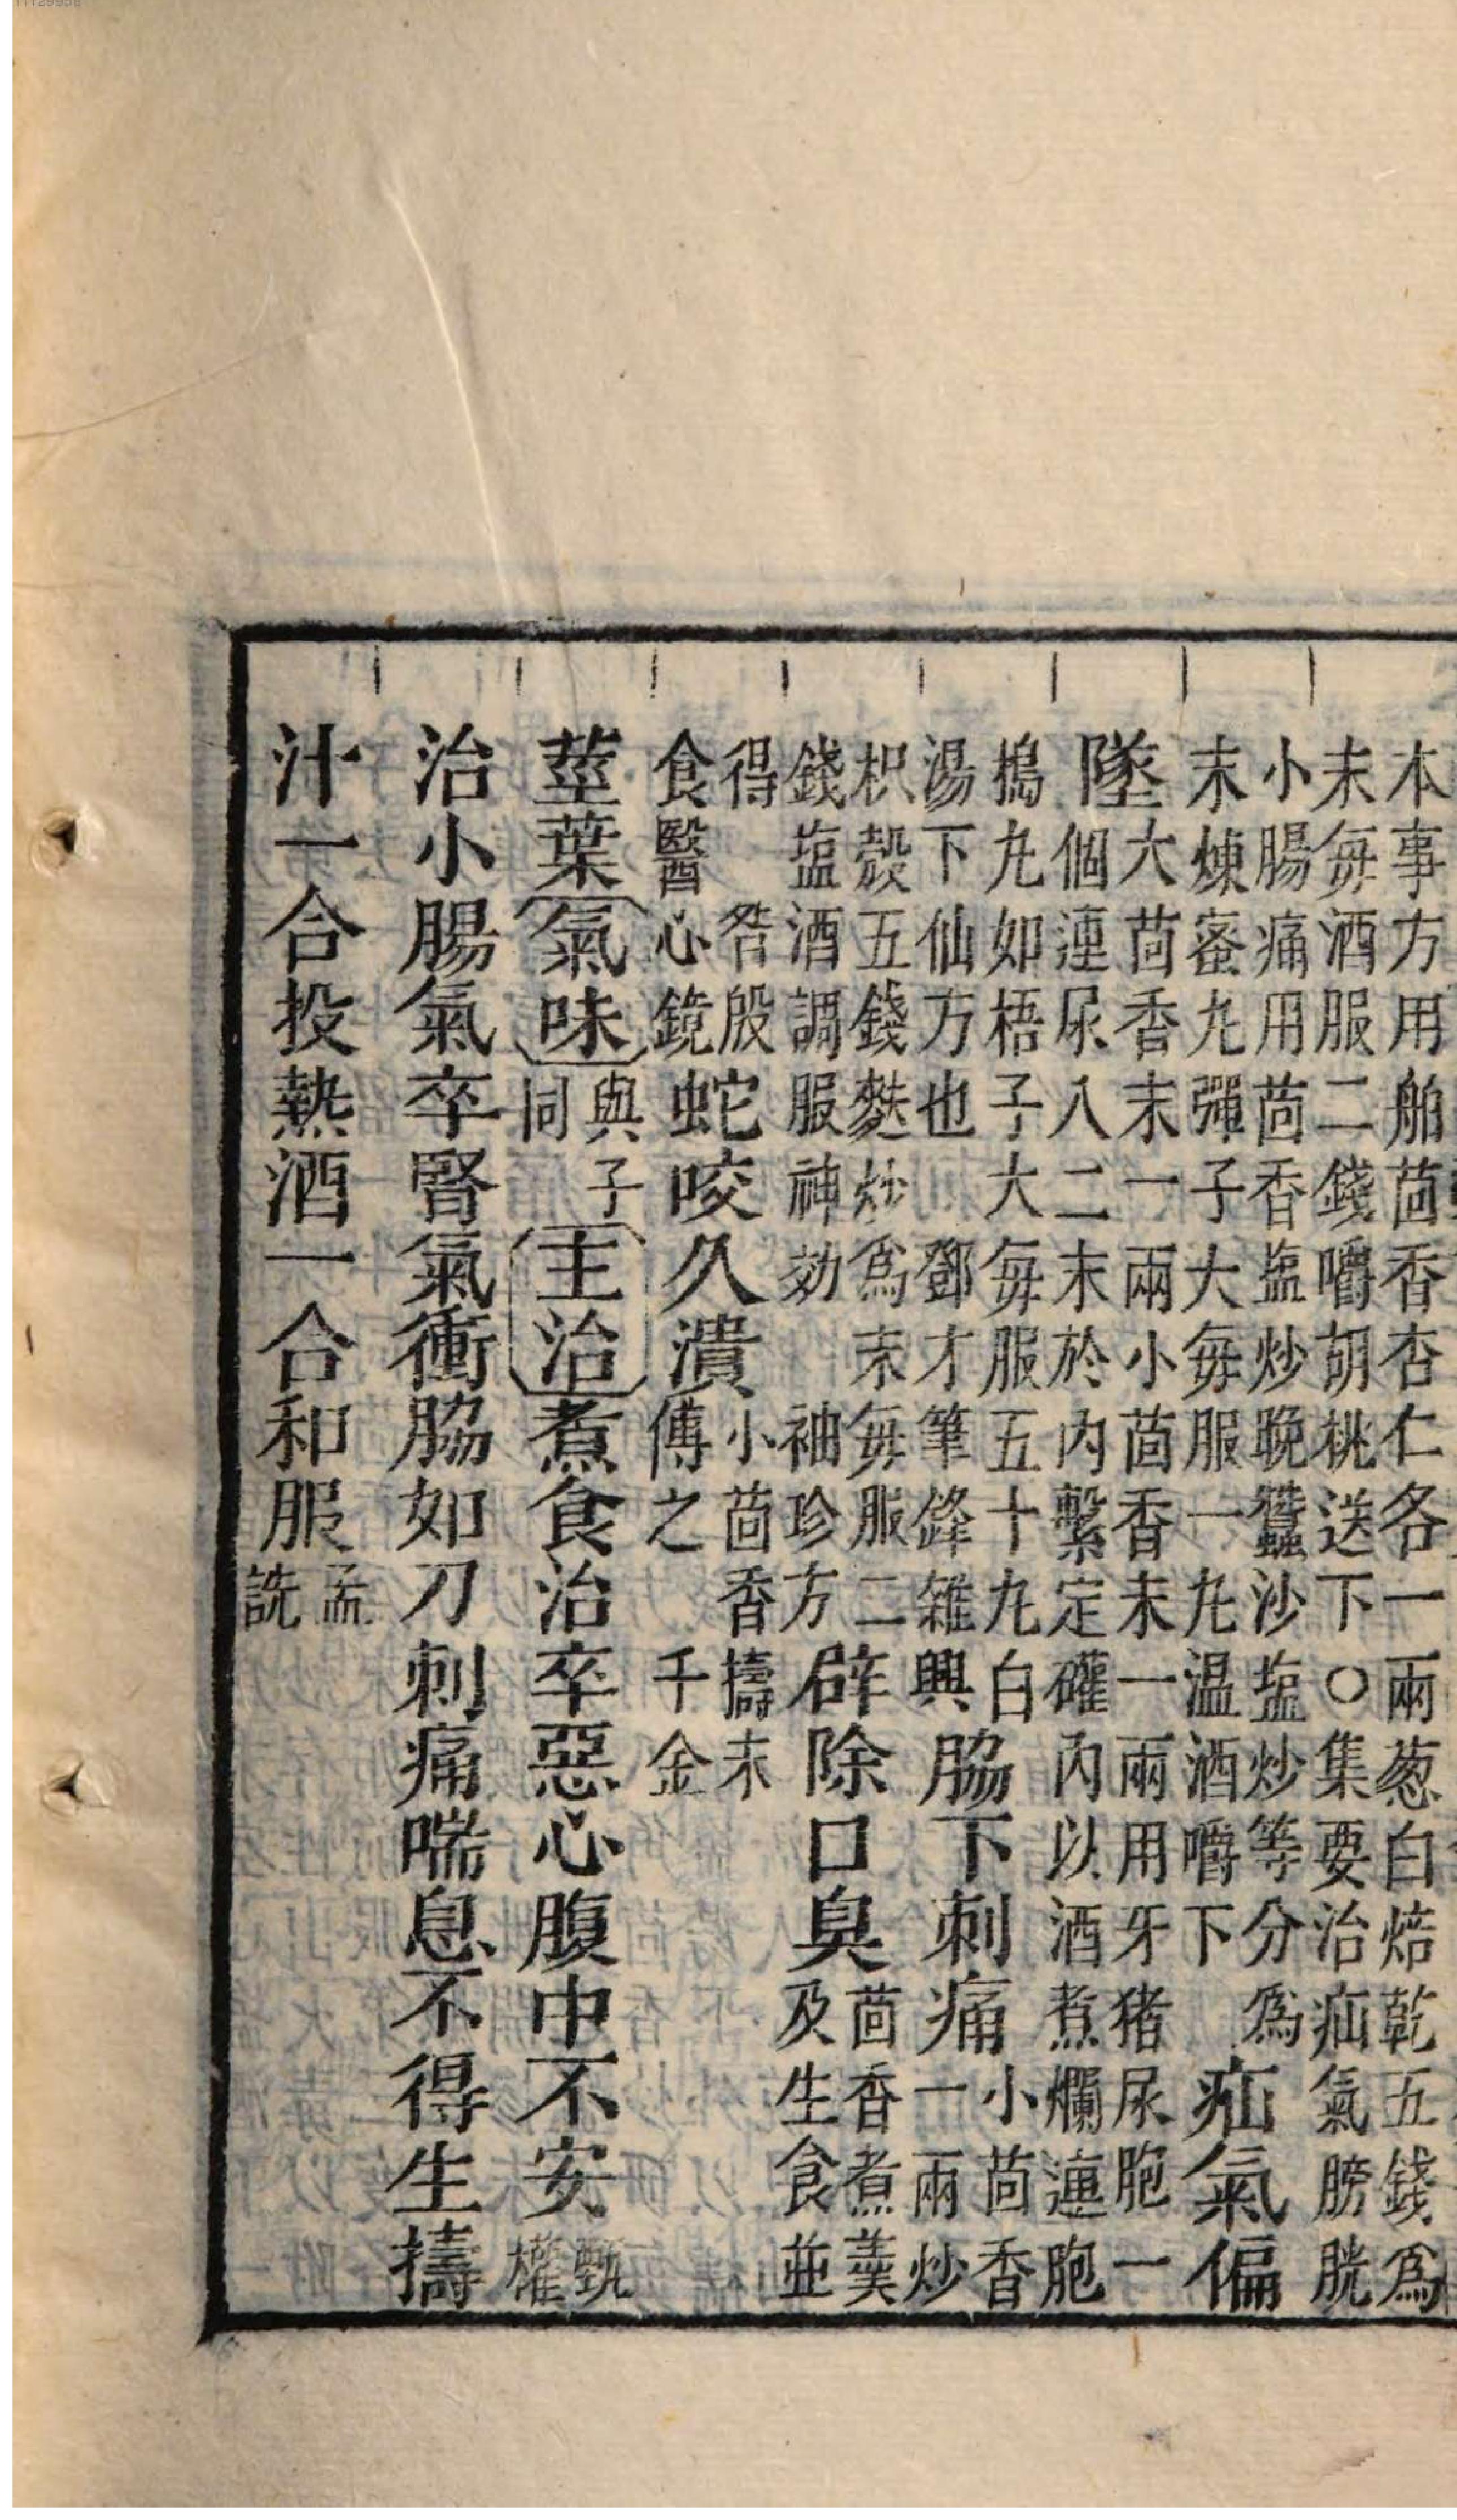 本事方用舶茴香杏仁各一兩葱白焙乾五錢爲
末每酒服二錢嚼胡桃送下○集要治疝氣膀胱
小腸痛用茴香塩炒晚蠶沙塩炒等分爲
末煉蜜丸彈子大每服一丸温酒嚼下
疝氣偏
墜
大茴香末一兩小茴香末一兩用牙猪尿胞一
個連尿八二末於内繫定礶内以酒煮爛連胞
搗丸如梧子大每服五十丸白
湯下仙方也 鄧才筆鋒雜興
脇下刺痛
小茴香
一兩炒
枳殻五錢麩炒爲末每服二
錢塩酒調服神効 袖珍方
辟除口臭
茴香煮羹
及生食並
得 昝殷
食醫心鏡
蛇咬久潰
小茴香擣末
傅之 千金
莖葉氣味
與子
同
主治煮食治卒惡心腹中不安
甄
權
治小腸氣卒腎氣衝脇如刀刺痛喘息不得生擣
汁一合投熱酒一合和服
孟
詵